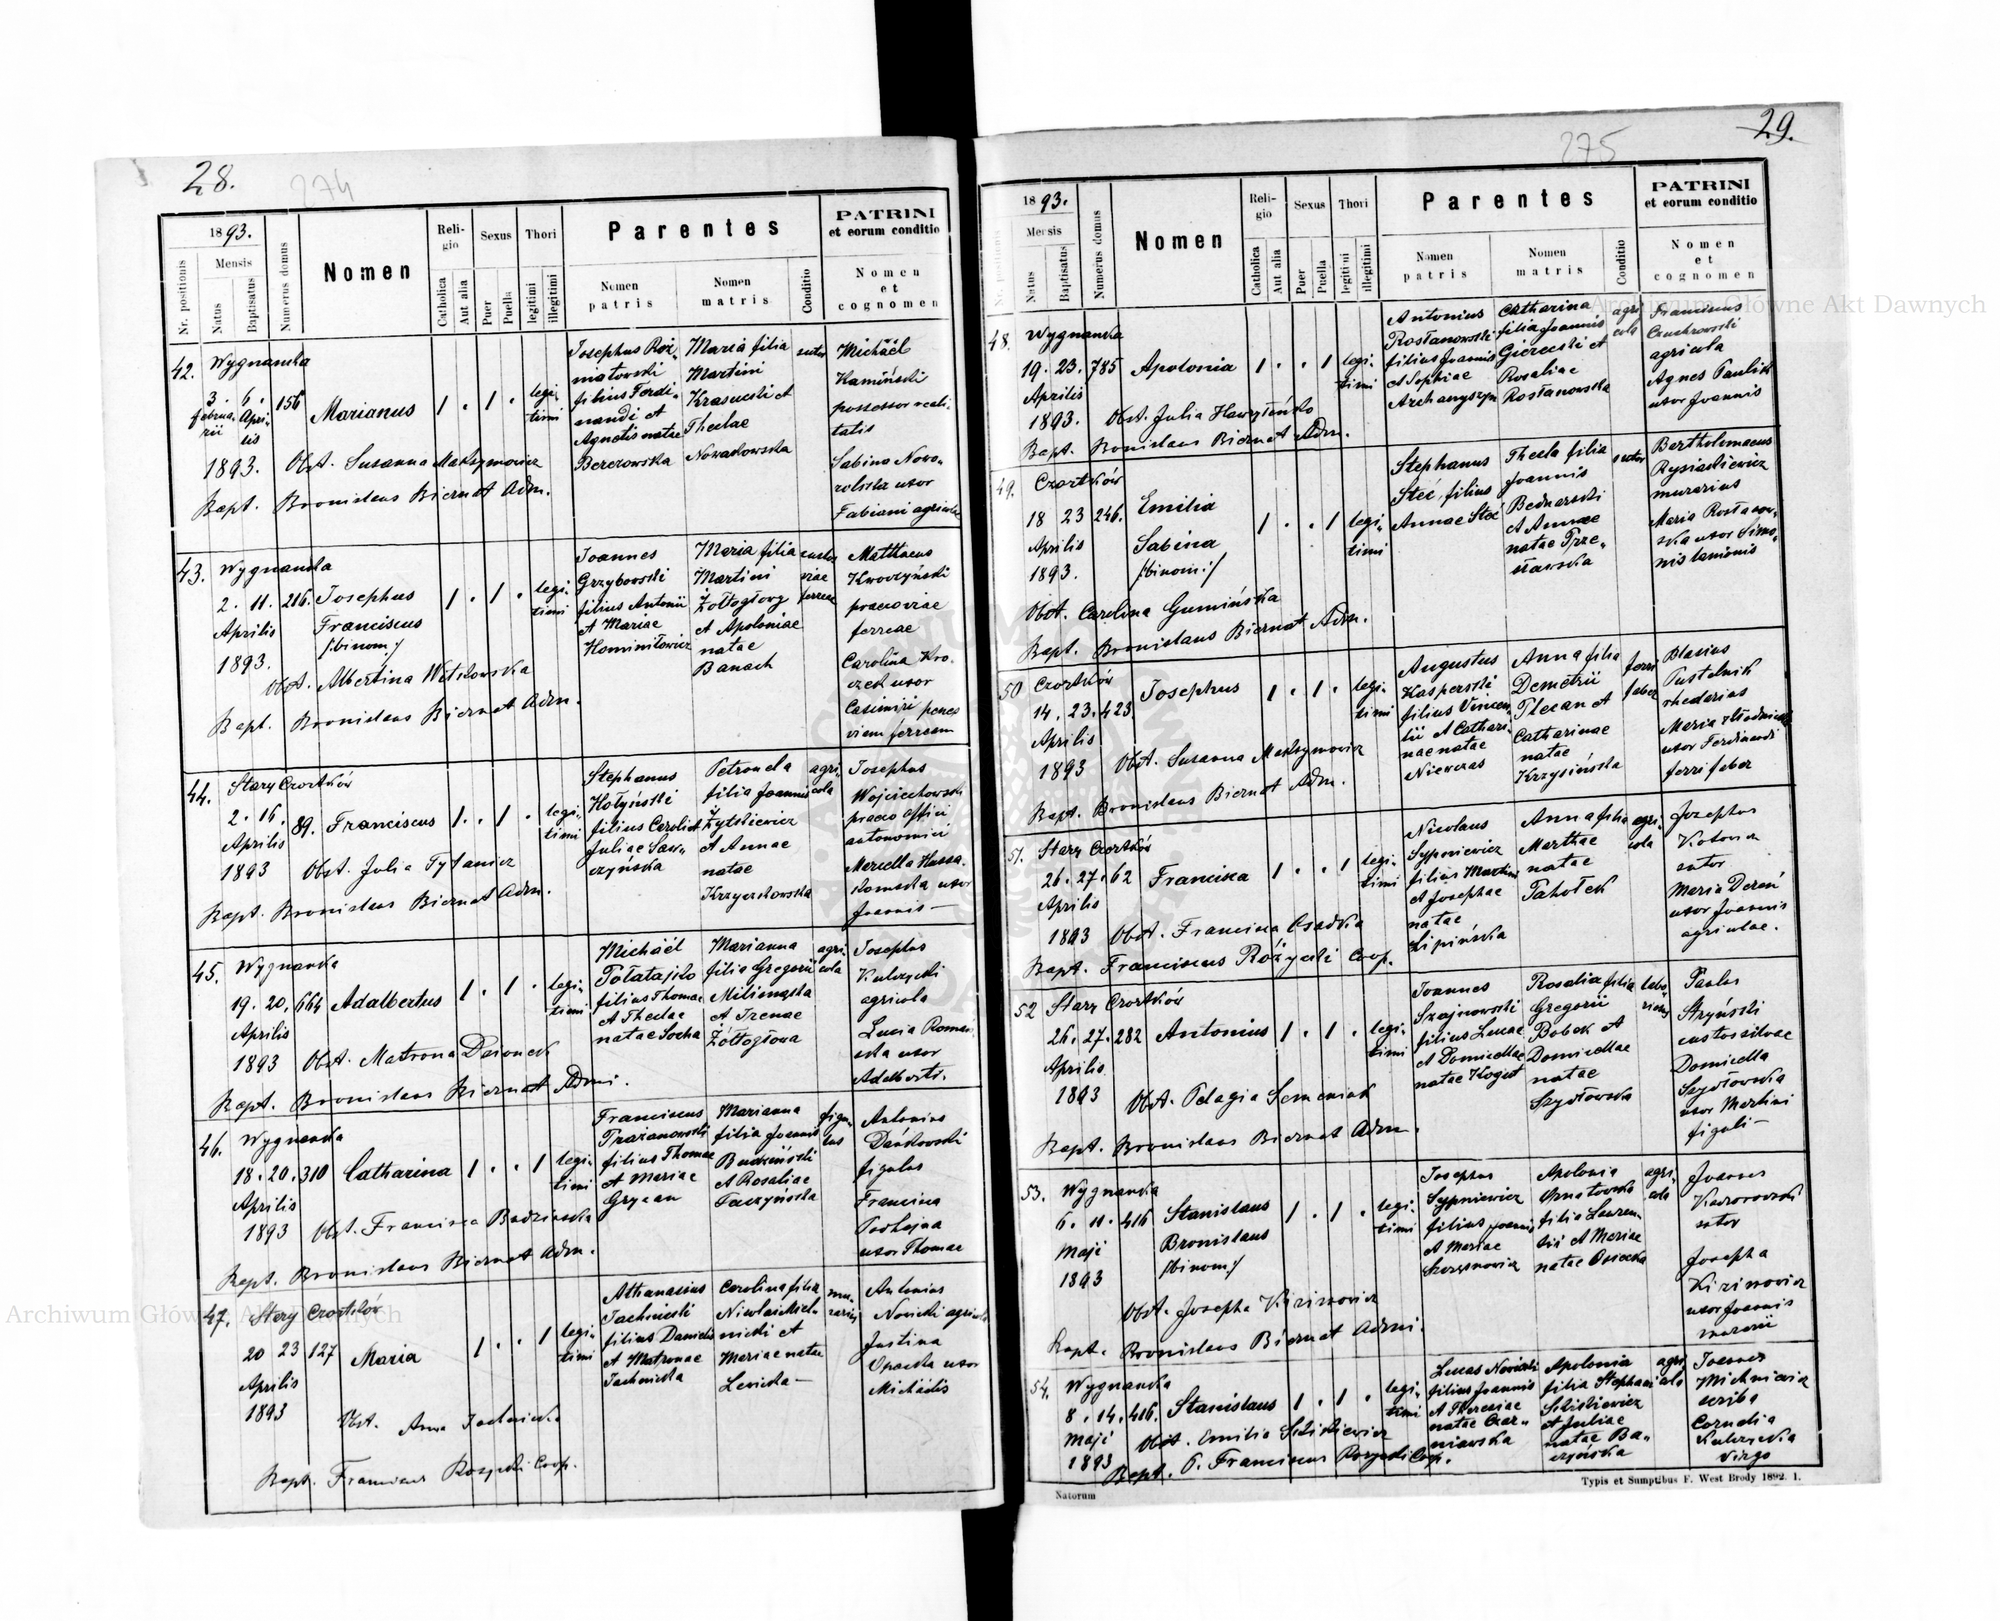 28.
274
1893.
Mensis
Nr. positionis
Natus
Baptisatus
Numerus domus
Nomen
Religio
Catholica
Aut alia
Sexus
Puer
Puella
Thori
legitimi
illegitimi
Parentes
Nomen patris
Nomen matris
Conditio
PATRINI
et eorum conditio
Nomen
et
cognomen
42. Wygnanka
3. 6. 156 Marianus 1 . 1 . legitimi
februarii Aprilis
1893. Obst. Susanna Maksymowicz
Bapt. Bronislaus Biernat Adm.
Josephus Roz-
niatowski
filius Ferdi-
nandi et
Agnetis natae
Berezowska
Maria filia
Martini
Krasucki et
Theclae
Nowakowska
sutor
Michäel
Kamiński
possessor reali-
tatis
Sabina Nowo-
rolska uxor
Fabiani agricolae
43. Wygnanka
2. 11. 216. Josephus 1 . 1 . legitimi
Aprilis Franciscus
1893. /:binom:/
Obst. Albertina Witkowska
Bapt. Bronislaus Biernat Adm.
Joannes
Grzybowski
filius Antonii
et Mariae
Maria filia
Martini
Żółtogłowy
et Apoloniae
natae
Banach
custos
viae
ferreae
Matthaeus
Kroczyński
praeco viae
ferreae
Carolina Kro-
czek uxor
Casimiri penes
viam ferream
44. Stary Czortków
2. 16. 89. Franciscus 1 . . 1 . legitimi
Aprilis
1893 Obst. Julia Tytanicz
Bapt. Bronislaus Biernat Adm.
Stephanus
Hołyński
filius Caroli et
Juliae Saw-
czyńska
Petronela
filia Joannis
Żytkiewicz
et Annae
natae
Krzyczkowska
agricola
Josephus
Wojciechowski
praeco offici
autonomici
Marcella
uxor
Joannis
45. Wygnanka
19. 20. 664 Adalbertus 1 . 1 . legitimi
Aprilis
1893 Obst. Matrona Daronech
Bapt. Bronislaus Biernat Adm.
Michäel
Połatajko
filius Thomae
et Theclae
natae Socha
Marianna
filia Gregorii
et Irenae
Żółtogłowa
agricola
Josephus
Kulczycki
agricola
Lucia Roman-
ska uxor
Adalberti.
46. Wygnanka
18. 20. 310 Catharina 1 . . 1 legitimi
Aprilis
1893 Obst. Francisca Budzinska
Bapt. Bronislaus Biernat Adm.
Franciscus
filius Thomae
et Mariae
Grycan
Marianna
filia Joannis
Budziński
et Rosaliae
Taczyńska
figulus
Antonius
Dańkowski
figulus
Francisca
uxor Thomae
47. Stary Czortków
20 23 127 Maria 1 . . 1 legitimi
Aprilis
1893 Obst. Anna Jachnicka
Bapt. Franciscus Rozycki Coop.
Athanasius
Jachnicki
filius Danielis
et Matronae
Jachnicka
Carolina filia
Nicolai
et
Mariae natae
Levicka
murarius
Antonius
Novicki agricola
Justina
Opacka uxor
Michäelis
29.
275
1893.
Mensis
Natus
Baptisatus
Numerus domus
Nomen
Religio
Catholica
Aut alia
Sexus
Puer
Puella
Thori
legitimi
illegitimi
Parentes
Nomen patris
Nomen matris
Conditio
PATRINI
et eorum conditio
Nomen
et
cognomen
48. Wygnanka
19. 23. 785 Apolonia 1 . . 1 legitimi
Aprilis
1893. Obst. Julia Hawryłeńko
Bapt. Bronislaus Biernat Adm.
Antonius
Rostanowski
filius Joannis
et Sophiae
Archanyszyn
Catharina
filia Joannis
Gierecski et
Rosaliae
Rostanowska
agricola
Franciscus
Czuchrowski
agricola
Agnes Paulik
uxor Joannis
49. Czortków
18 23 246. Emilia 1 . . 1 legitimi
Aprilis Sabina
1893. /:binom:/
Obst. Carolina Gumińska
Bapt. Bronislaus Biernat Adm.
Stephanus
Steć filius
Annae Steć
Thecla filia
Joannis
Bednarski
et Annae
natae
sutor
Bartholomaeus
Rysiakiewicz
murarius
Maria Rostanow-
ska uxor Simo-
nis lanionis
50 Czortków
14. 23. 423 Josephus 1 . 1 . legitimi
Aprilis
1893 Obst. Susanna Maksymowicz
Bapt. Bronislaus Biernat Adm.
Augustus
Kasperski
filius Vincen-
tii et Cathari-
nae natae
Niewczas
Anna filia
Demetrii
Plecan et
Catharinae
natae
Krzysińska
ferri
faber
Blasius
Pustelnik
rhedarius
Maria
uxor Ferdinandi
ferri faber
51. Stary Czortków
26. 27. 62 Francisca 1 . . 1 legitimi
Aprilis
1893 Obst. Francisca Osadka
Bapt. Franciscus Różycki Coop.
Nicolaus
Sypniewicz
filius Martini
et Josephae
natae
Lipińska
Anna filia
Marthae
natae
Tahołek
agricola
Josephus
Kotowicz
sutor
Maria Dereń
uxor Joannis
agricolae.
52 Stary Czortków
26. 27. 282 Antonius 1 . 1 . legitimi
Aprilis
1893 Obst. Pelagia Semeniuk
Bapt. Bronislaus Biernat Adm.
Joannes
Szajnowski
filius Lucae
et Domicellae
natae Kogut
Rosalia filia
Gregorii
Bobek et
Domicellae
natae
Szydłowska
laboriosus
Paulus
Stryński
custos silvae
Domicella
Szydłowska
uxor Martini
figuli
53. Wygnanka
6. 11. 416 Stanislaus 1 . 1 . legitimi
Maji Bronislaus
1893 /:binom:/
Obst. Josepha Kirimowicz
Bapt. Bronislaus Biernat Admi.
Josephus
Sypniewicz
filius Joannis
et Mariae
Szczęsnowicz
Apolonia
Ornatowska
filia Lauren-
tii et Mariae
natae Osiecka
agricola
Joannes
Kaczorowski
sutor
Josepha
Kirimowicz
uxor Joannis
murarii
54. Wygnanka
8. 14. 416. Stanislaus 1 . 1 . legitimi
Maji Obst. Emilia Sitkiewicz
1893 Bapt. P. Franciscus Rozycki Coop.
Lucas Novicki
filius Joannis
et Theresiae
natae Czar-
niawska
Apolonia
filia Stephani
Sitkiewicz
et Juliae
natae Ba-
czyńska
agricola
Joannes
Michniewicz
scriba
Cornelia
Kulczycka
virgo
Natorum
Typis et Sumptibus F. West Brody 1892. 1.
Archiwum Główne Akt Dawnych
Archiwum Główne Akt Dawnych